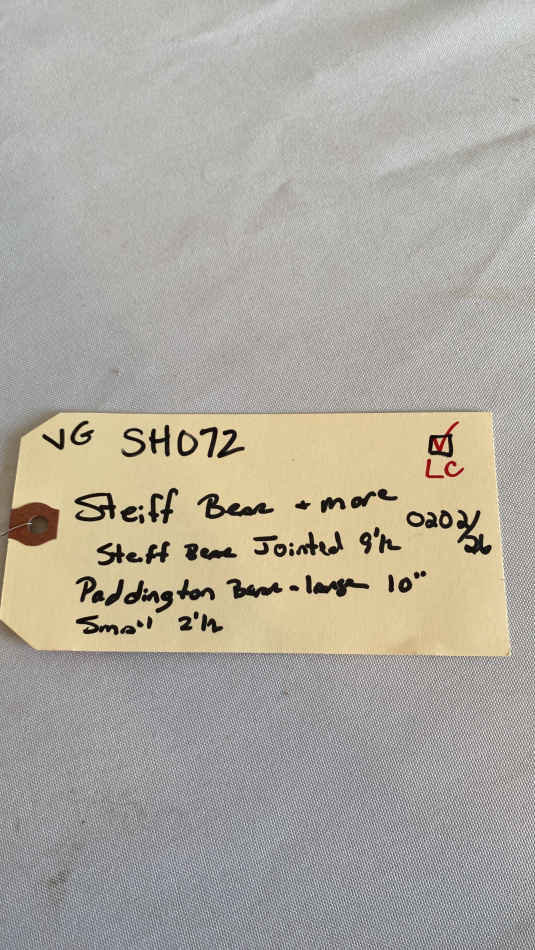 VG SH072
LC
Steiff Bear + more
0202/26
Steiff Bear Jointed 9'/2
Paddington Bear - large 10"
Small 2'/2